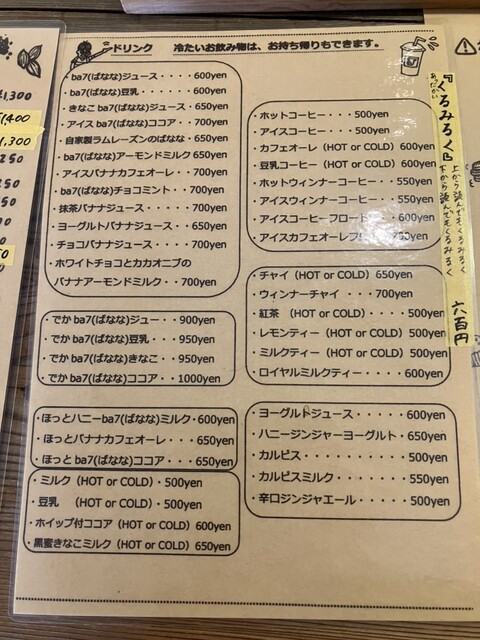 ドリンク　冷たいお飲み物は、お持ち帰りもできます。
・ba7(ばなな)ジュース・・・・600yen
・ba7(ばなな)豆乳・・・・・・600yen
・きなこ ba7(ばなな)ジュース・650yen
・アイス ba7(ばなな)ココア・・700yen
・自家製ラムレーズンのばなな・650yen
・ba7(ばなな)アーモンドミルク 650yen
・アイスバナナカフェオーレ・・700yen
・ba7(ばなな)チョコミント・・700yen
・抹茶バナナジュース・・・・700yen
・ヨーグルトバナナジュース・・650yen
・チョコバナナジュース・・・・700yen
・ホワイトチョコとカカオニブの
バナナアーモンドミルク・・700yen
・でか ba7(ばなな)ジュー・・900yen
・でか ba7(ばなな)豆乳・・・950yen
・でか ba7(ばなな)きなこ・・950yen
・でか ba7(ばなな)ココア・・1000yen
・ほっとハニーba7(ばなな)ミルク・600yen
・ほっとバナナカフェオーレ・・650yen
・ほっと ba7(ばなな)ココア・・・650yen
・ミルク（HOT or COLD）・500yen
・豆乳　（HOT or COLD）・500yen
・ホイップ付ココア（HOT or COLD）600yen
・黒蜜きなこミルク（HOT or COLD）650yen
・ホットコーヒー・・・500yen
・アイスコーヒー・・・500yen
・カフェオーレ（HOT or COLD）600yen
・豆乳コーヒー（HOT or COLD）600yen
・ホットウィンナーコーヒー・・550yen
・アイスウィンナーコーヒー・・550yen
・アイスコーヒーフロート
・アイスカフェオーレフ
・チャイ（HOT or COLD）650yen
・ウィンナーチャイ　・・700yen
・紅茶　(HOT or COLD）・・・500yen
・レモンティー（HOT or COLD）500yen
・ミルクティー（HOT or COLD）500yen
・ロイヤルミルクティー・・・・600yen
・ヨーグルトジュース・・・・・600yen
・ハニージンジャーヨーグルト・650yen
・カルピス・・・・・・・・・500yen
・カルピスミルク・・・・・・550yen
・辛口ジンジャエール・・・・500yen
あったかい
『くるみるく』
上から読んでもくるみるく
下から読んでもくるみるく
六百円
¥1,300
1,300
250